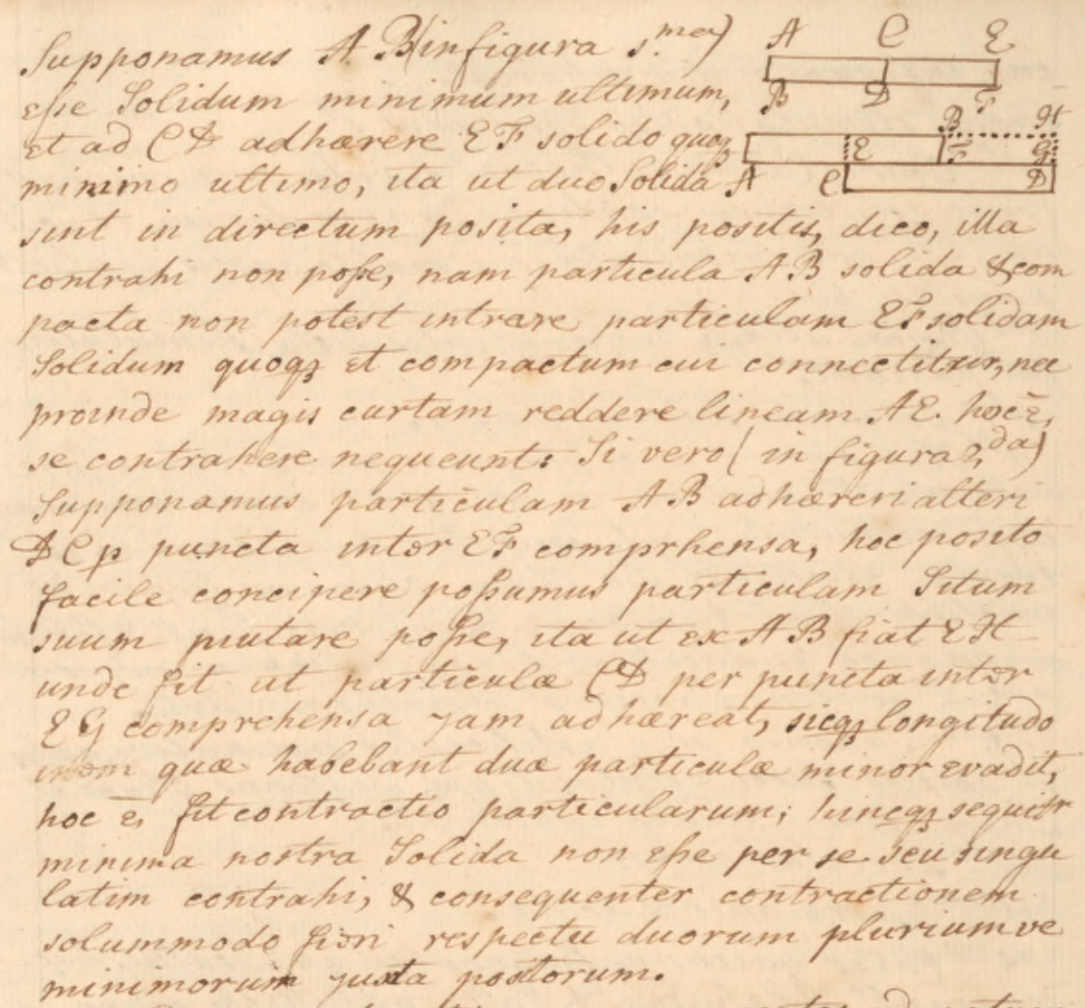 Supponamus A B (in figura 1.ma)
esse Solidum minimum ultimum,
et ad CD adhærere EF solido quoq
minimo ultimo, ita ut duo Solida
sint in directum posita, his positis, dico, illa
contrahi non posse, nam particula AB solida & com
pacta non potest intrare particulam EF solidam
Solidum quoq et compactum cui connectitur, nec
proinde magis curtam reddere lineam AE. hoc ē,
se contrahere nequeunt: Si vero (in figura 2.da)
Supponamus particulam AB adhæreri alteri
DC p puncta inter EF comprhensa, hoc posito
facile concipere possumus particulam Situm
suum mutare posse, ita ut ex AB fiat EH
unde fit ut particulæ CD per puncta inter
EG comprehensa jam adhæreat, sicq longitudo
quæ habebant duæ particulæ minor evadit,
hoc ē, fit contractio particularum; hincq sequitr
minima nostra Solida non esse per se seu singu
latim contrahi, & consequenter contractionem
solummodo fieri respectu duorum pluriumve
minimorum juxta positorum.
A C E
B D F
B H
E F G
A C D